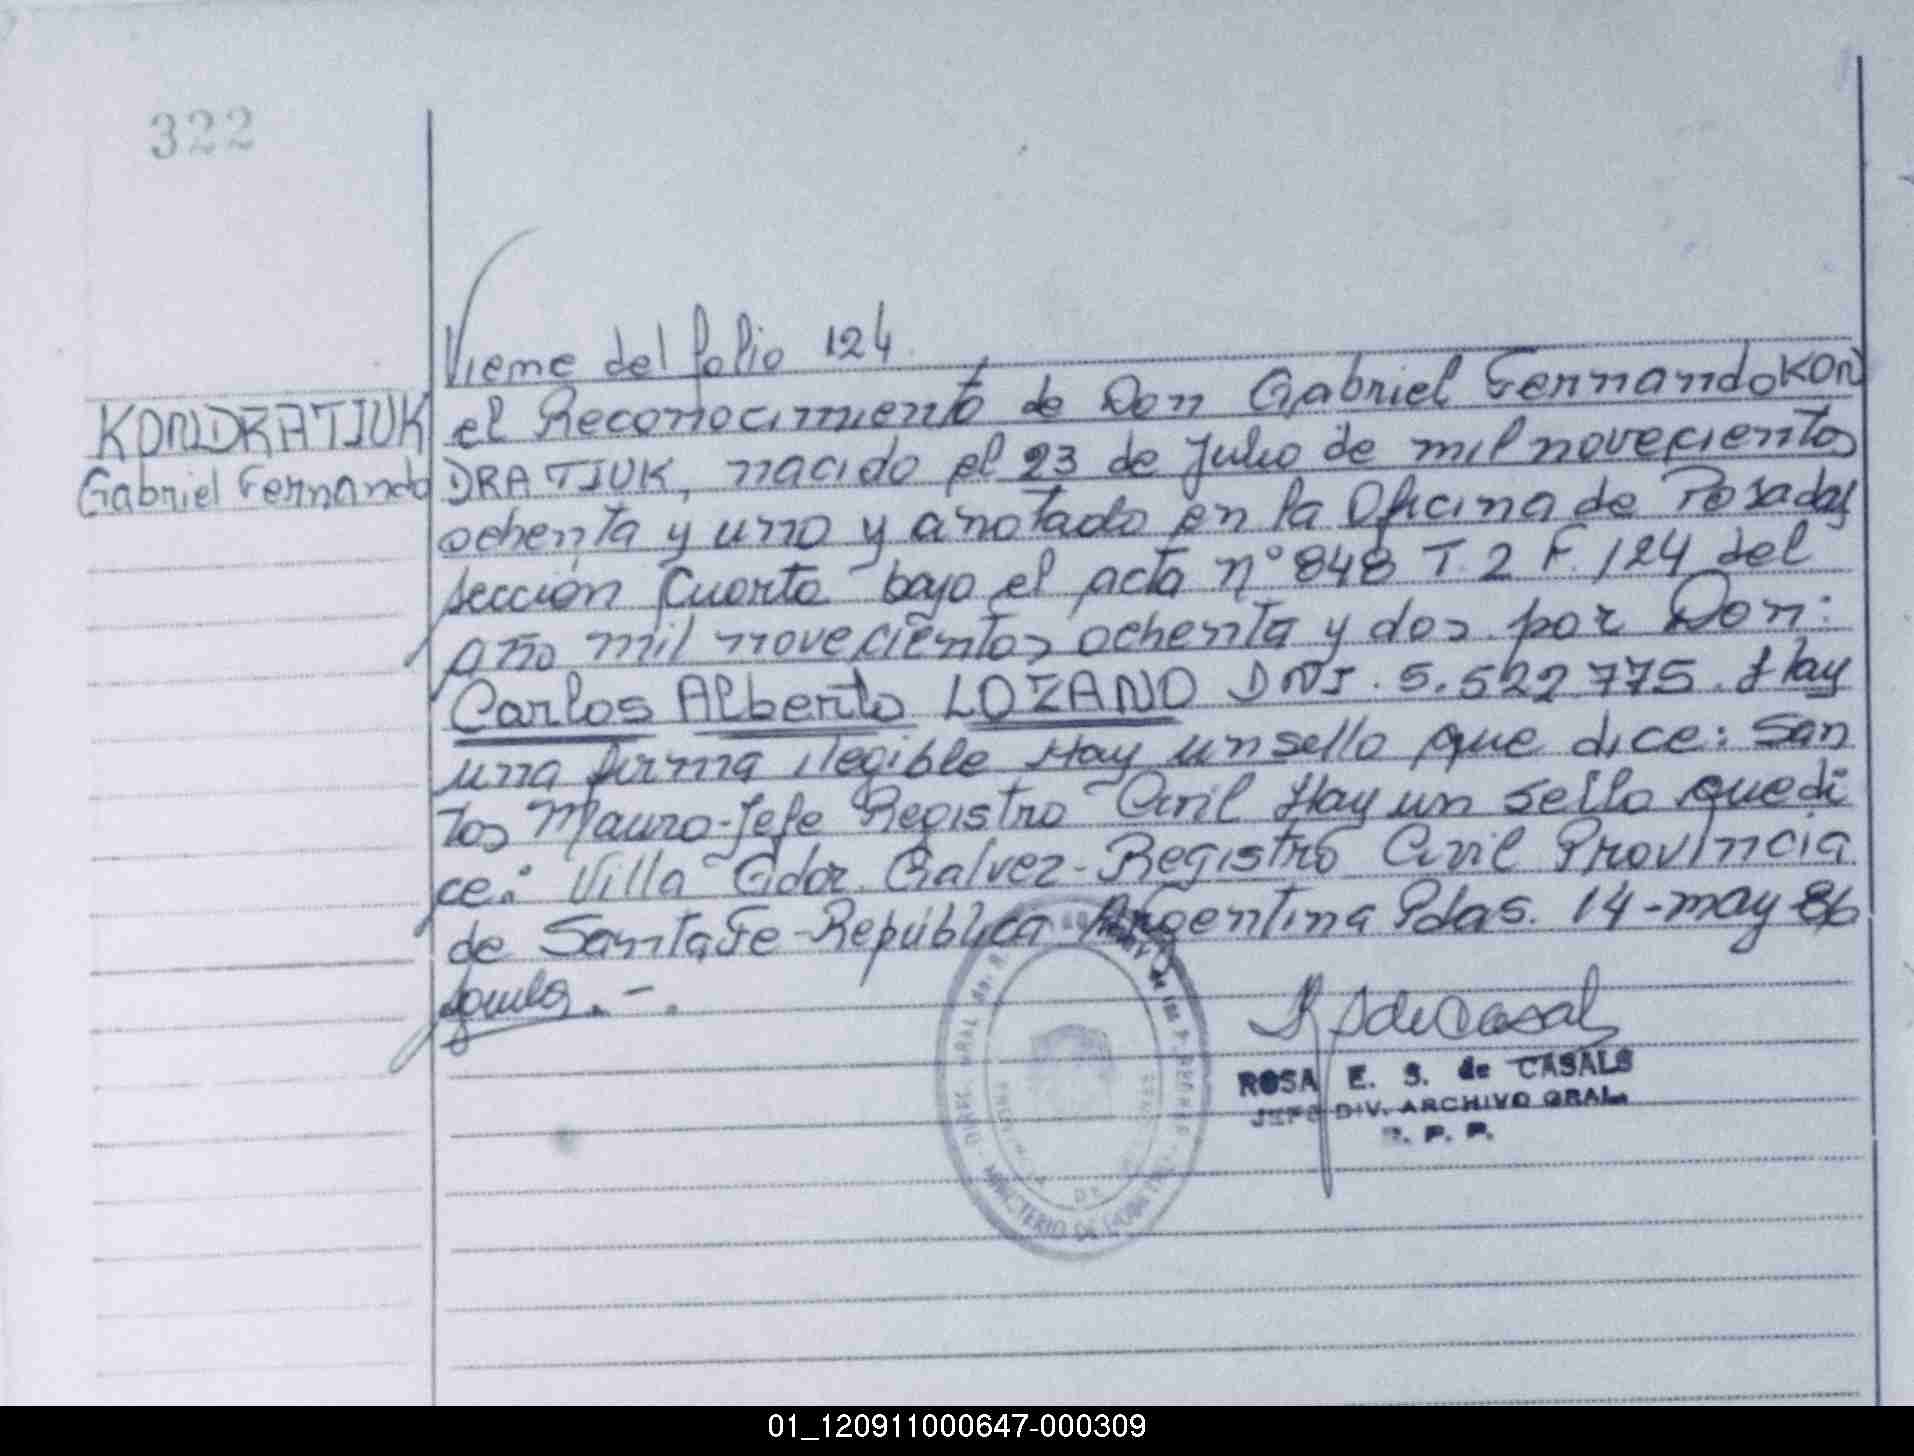 322
Viene del folio 124
KONDRATIUK
Gabriel Fernando
el Reconocimiento de Don Gabriel Fernando KON
DRATIUK, nacido el 23 de Julio de mil novecientos
ochenta y uno y anotado en la Oficina de Posadas
sección Cuarta bajo el acta n° 848 T. 2 F. 124 del
año mil novecientos ochenta y dos por Don:
Carlos Alberto LOZANO DNI. 5.522775. Hay
una firma ilegible Hay un sello que dice: San
tos Mauro-Jefe Registro Civil Hay un sello que di
ce: Villa Gdor. Galvez-Registro Civil Provincia
de Santa Fe-República Argentina Pdas. 14-may-86
ROSA E. S. de CASALS
JEFE DIV. ARCHIVO GRAL.
R. P. P.
MINISTERIO DE
01_120911000647-000309